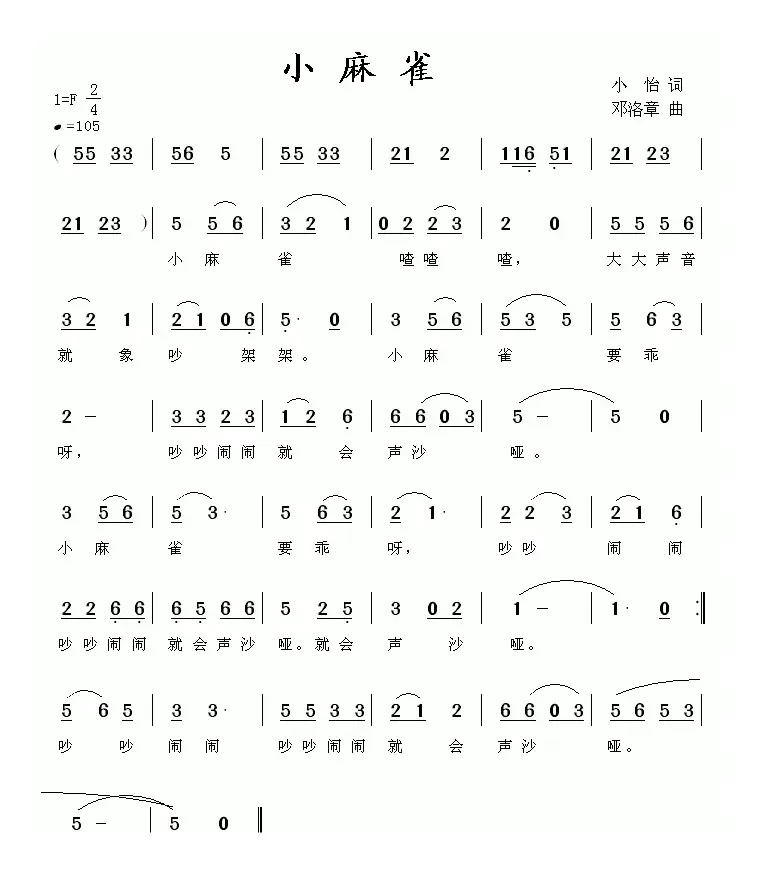 小麻雀
小 怡 词
1=F 2/4
邓洛章 曲
♩=105
( 55 33 | 56 5 | 55 33 | 21 2 | 116 51 | 21 23 |
21 23 ) | 5 56 | 32 1 | 02 23 | 2 0 | 55 56 |
小 麻 雀 喳喳 喳， 大大声音
32 1 | 21 06 | 5· 0 | 3 56 | 53 5 | 5 63 |
就 象 吵 架 架。 小 麻 雀 要 乖
2 － | 33 23 | 12 6 | 66 03 | 5 － | 5 0 |
呀， 吵吵闹闹 就 会 声沙 哑。
3 56 | 5 3· | 5 63 | 2 1· | 22 3 | 21 6 |
小 麻 雀 要 乖 呀， 吵吵 闹 闹
22 66 | 65 66 | 5 25 | 3 02 | 1 － | 1· 0 :||
吵吵闹闹 就会声沙 哑。就会 声 沙 哑。
5 6 5 | 3 3· | 55 33 | 21 2 | 66 03 | 56 53 |
吵 吵 闹 闹 吵吵闹闹 就 会 声沙 哑。
5 － | 5 0 ||